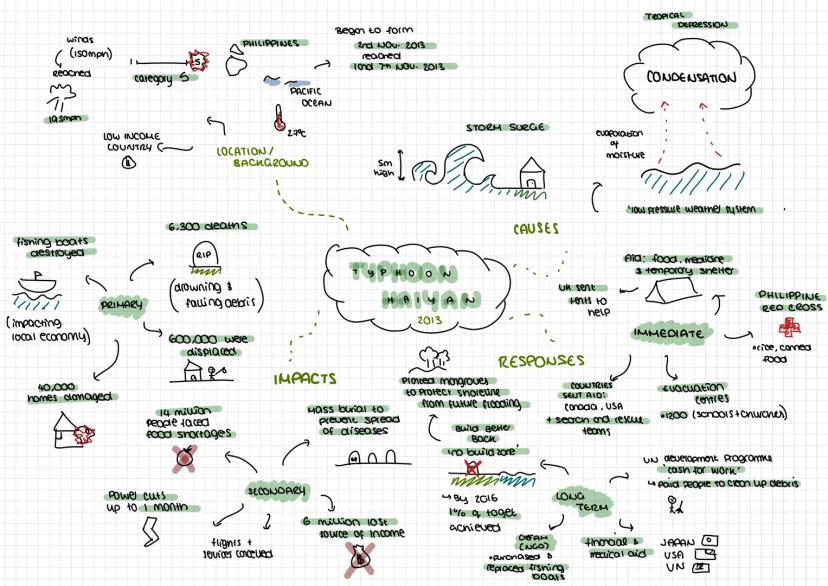 TYPHOON
HAIYAN
2013
LOCATION/
BACKGROUND
winds
(150mph)
reached
195mph
1
5
category 5
PHILIPPINES
PACIFIC
OCEAN
27°C
Began to form
2nd NOV. 2013
reached
land 7th NOV. 2013
LOW INCOME
COUNTRY
CAUSES
STORM SURGE
5m
high
TROPICAL
DEPRESSION
CONDENSATION
evaporation
of
moisture
'low pressure weather system
RESPONSES
IMMEDIATE
Aid: food, medicine
& temporary shelter
UK sent
tents to
help
PHILIPPINE
RED CROSS
•rice, canned
food
COUNTRIES
SENT AID:
Canada, USA
+ search and rescue
teams
Evacuation
centres
•1200 (schools+churches)
LONG
TERM
UN development Programme
'cash for work'
↳ paid people to clean up debris
financial &
medical aid
JAPAN
USA
UN
OXFAM
(NGO)
•purchased &
replaced fishing
boats
Build Better
Back
'no build zone'
↳ By 2016
1% of target
achieved
Planted mangroves
to protect shoreline
from future flooding
IMPACTS
PRIMARY
6.300 deaths
RIP
(drowning &
falling debris)
fishing boats
destroyed
(impacting
local economy)
600,000 were
displaced
40,000
homes damaged
SECONDARY
14 million
people faced
food shortages
Mass burial to
prevent spread
of diseases
Power cuts
up to 1 month
flights +
services cancelled
6 million lost
source of income